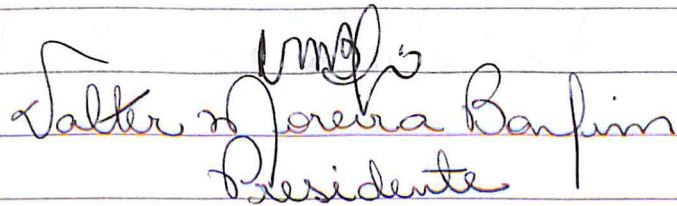 Valter Moreira Bonfim
Presidente